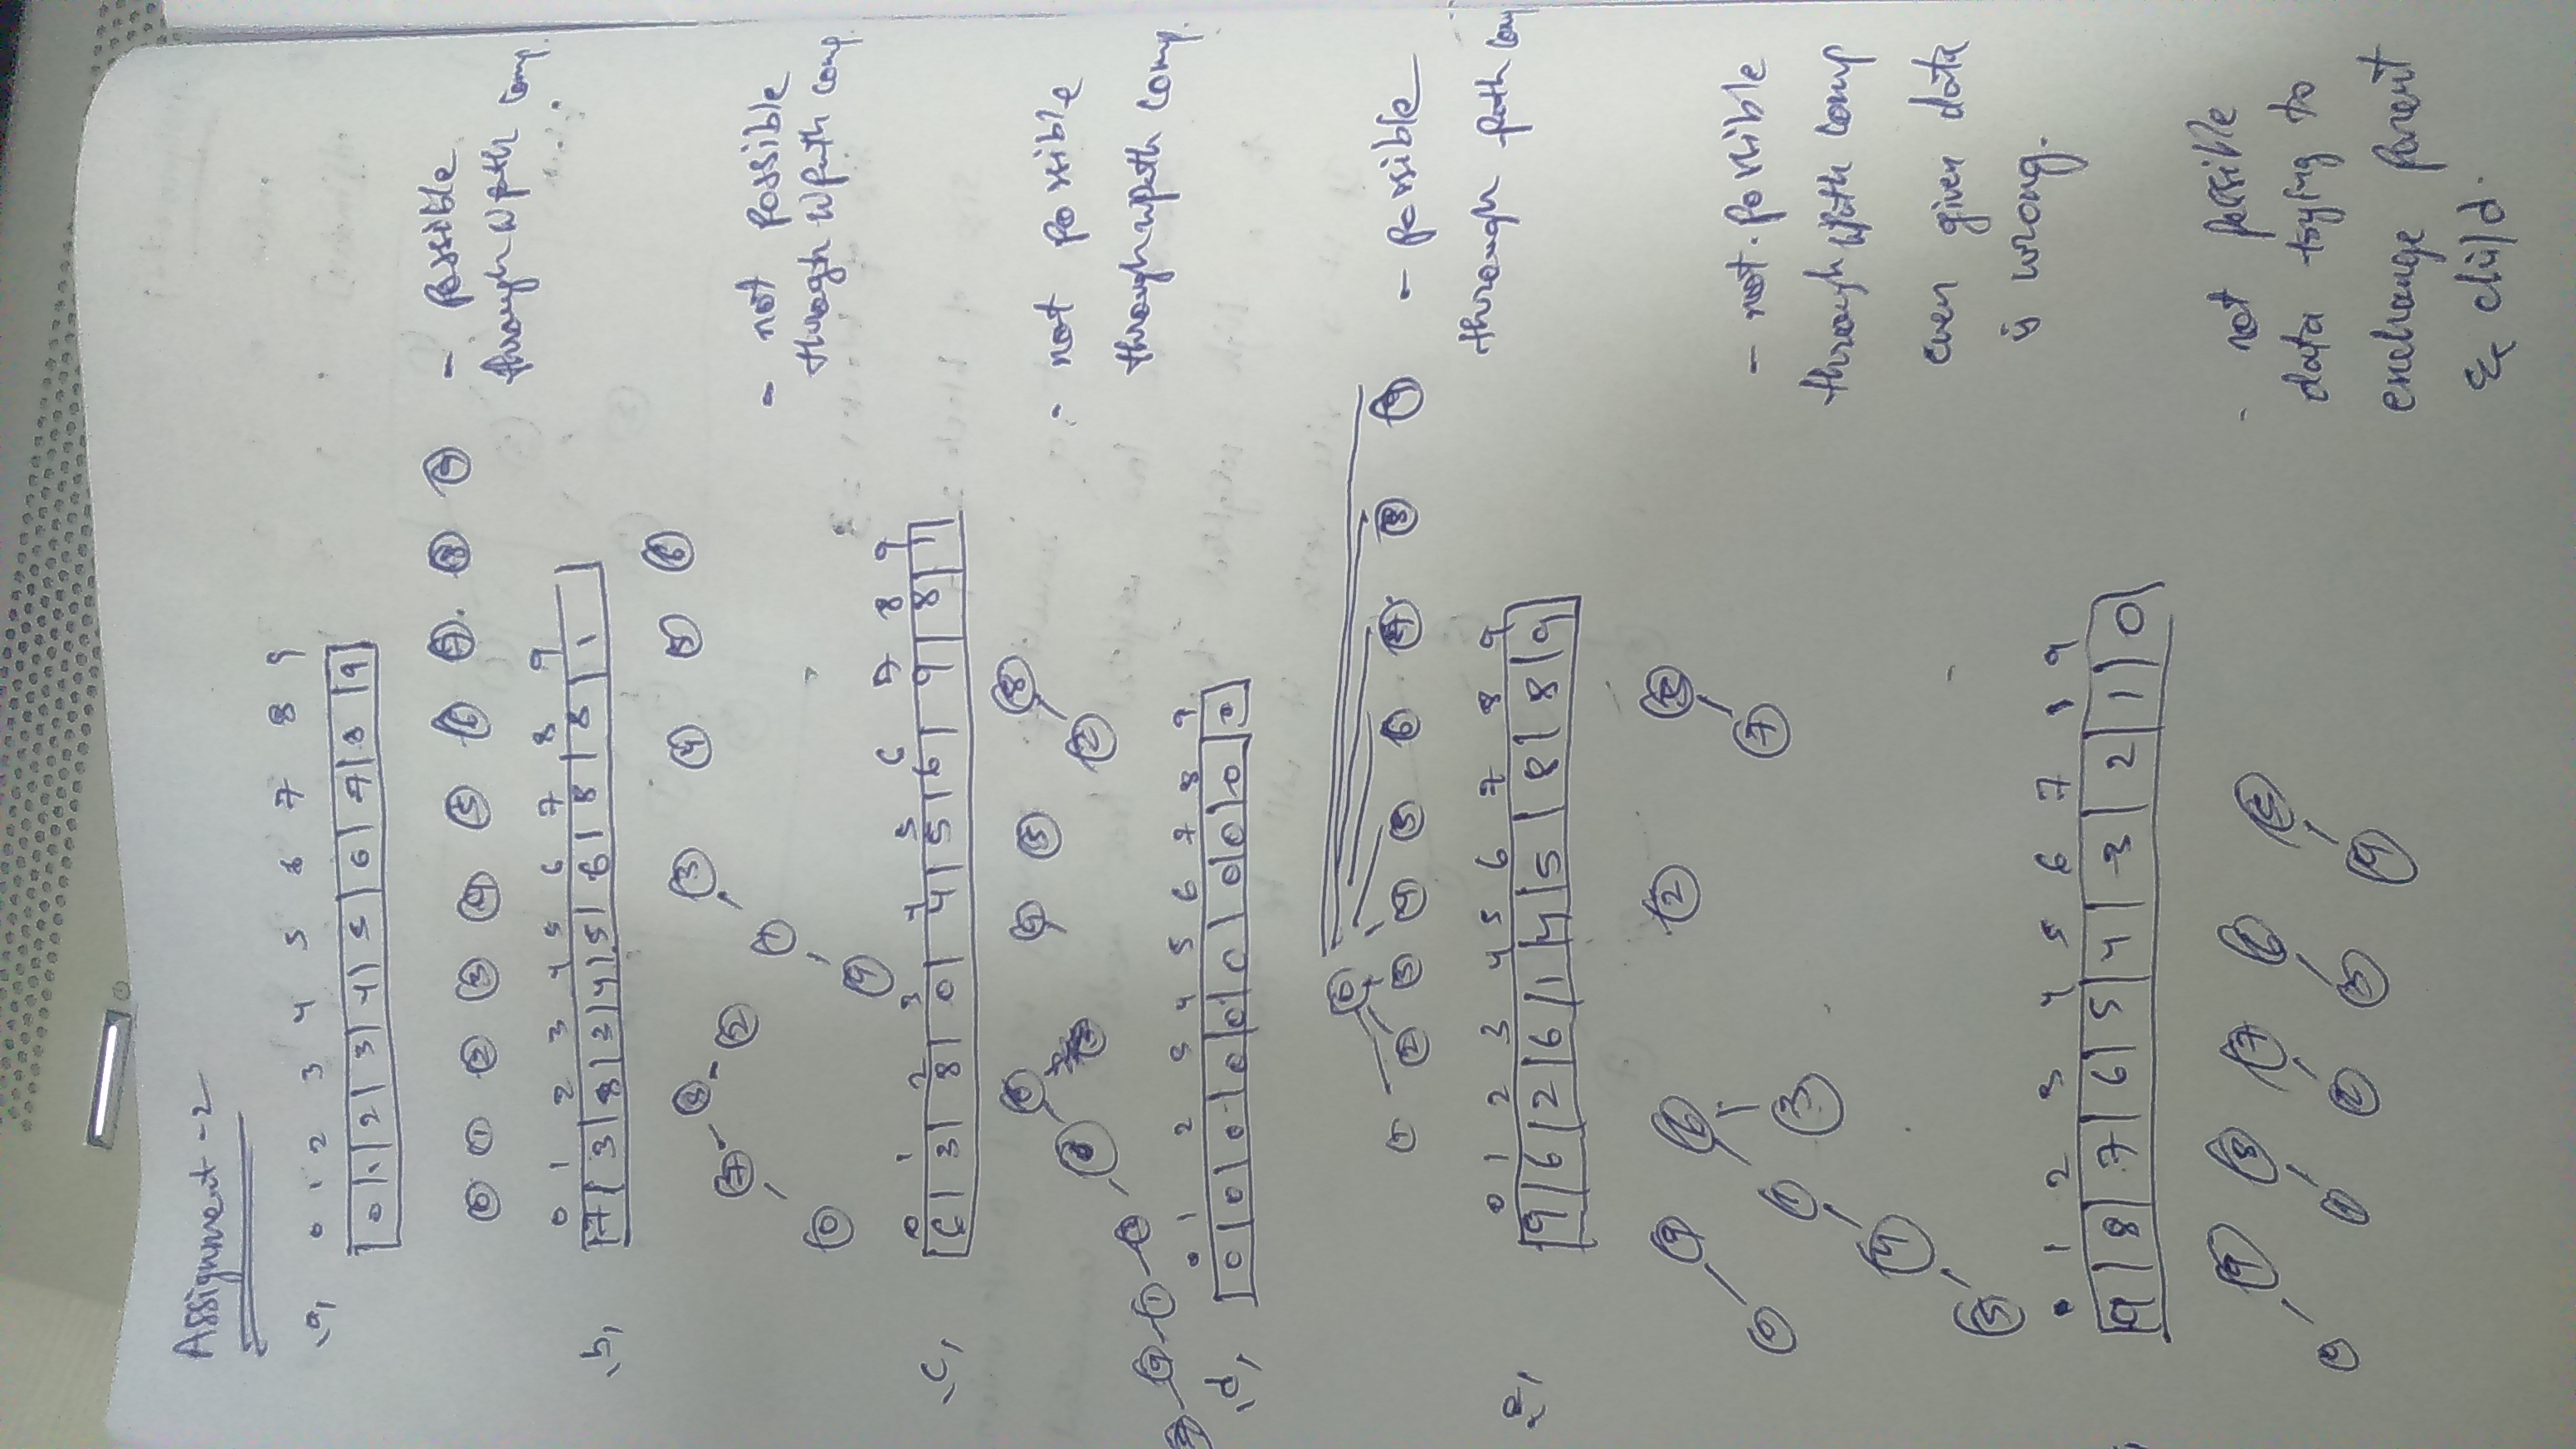 Assignment - 2
a, 0 1 2 3 4 5 6 7 8 9
0 1 2 3 4 5 6 7 8 9
0 1 2 3 4 5 6 7 8 9 - possible
through W path comp.
b, 0 1 2 3 4 5 6 7 8 9
7 3 8 3 4 5 6 8 8 1
8 3 4 5 6
7 2
1
- not possible
throgh W path comp.
0
9
c, 0 1 2 3 4 5 6 7 8 9
6 3 8 0 4 5 6 9 8 1
6 4 5 8
- not possible
0 2
through wpath comp.
7 9 1 3
d, 0 1 2 3 4 5 6 7 8 9
0 0 0 0 0 0 0 0 0 0
0
1 2 3 4 5 6 7 8 9 - possible
through path com
e, 0 1 2 3 4 5 6 7 8 9
9 6 2 6 1 4 5 8 8 9
9 6 2 8
- not possible
0 1 3 7
through Wpath comp
4
even given data
5
is wrong.
0 1 2 3 4 5 6 7 8 9
9 8 7 6 5 4 3 2 1 0
9 8 7 6 5
- not possible
0 1 2 3 4
data trying to
exchange parent
& child.